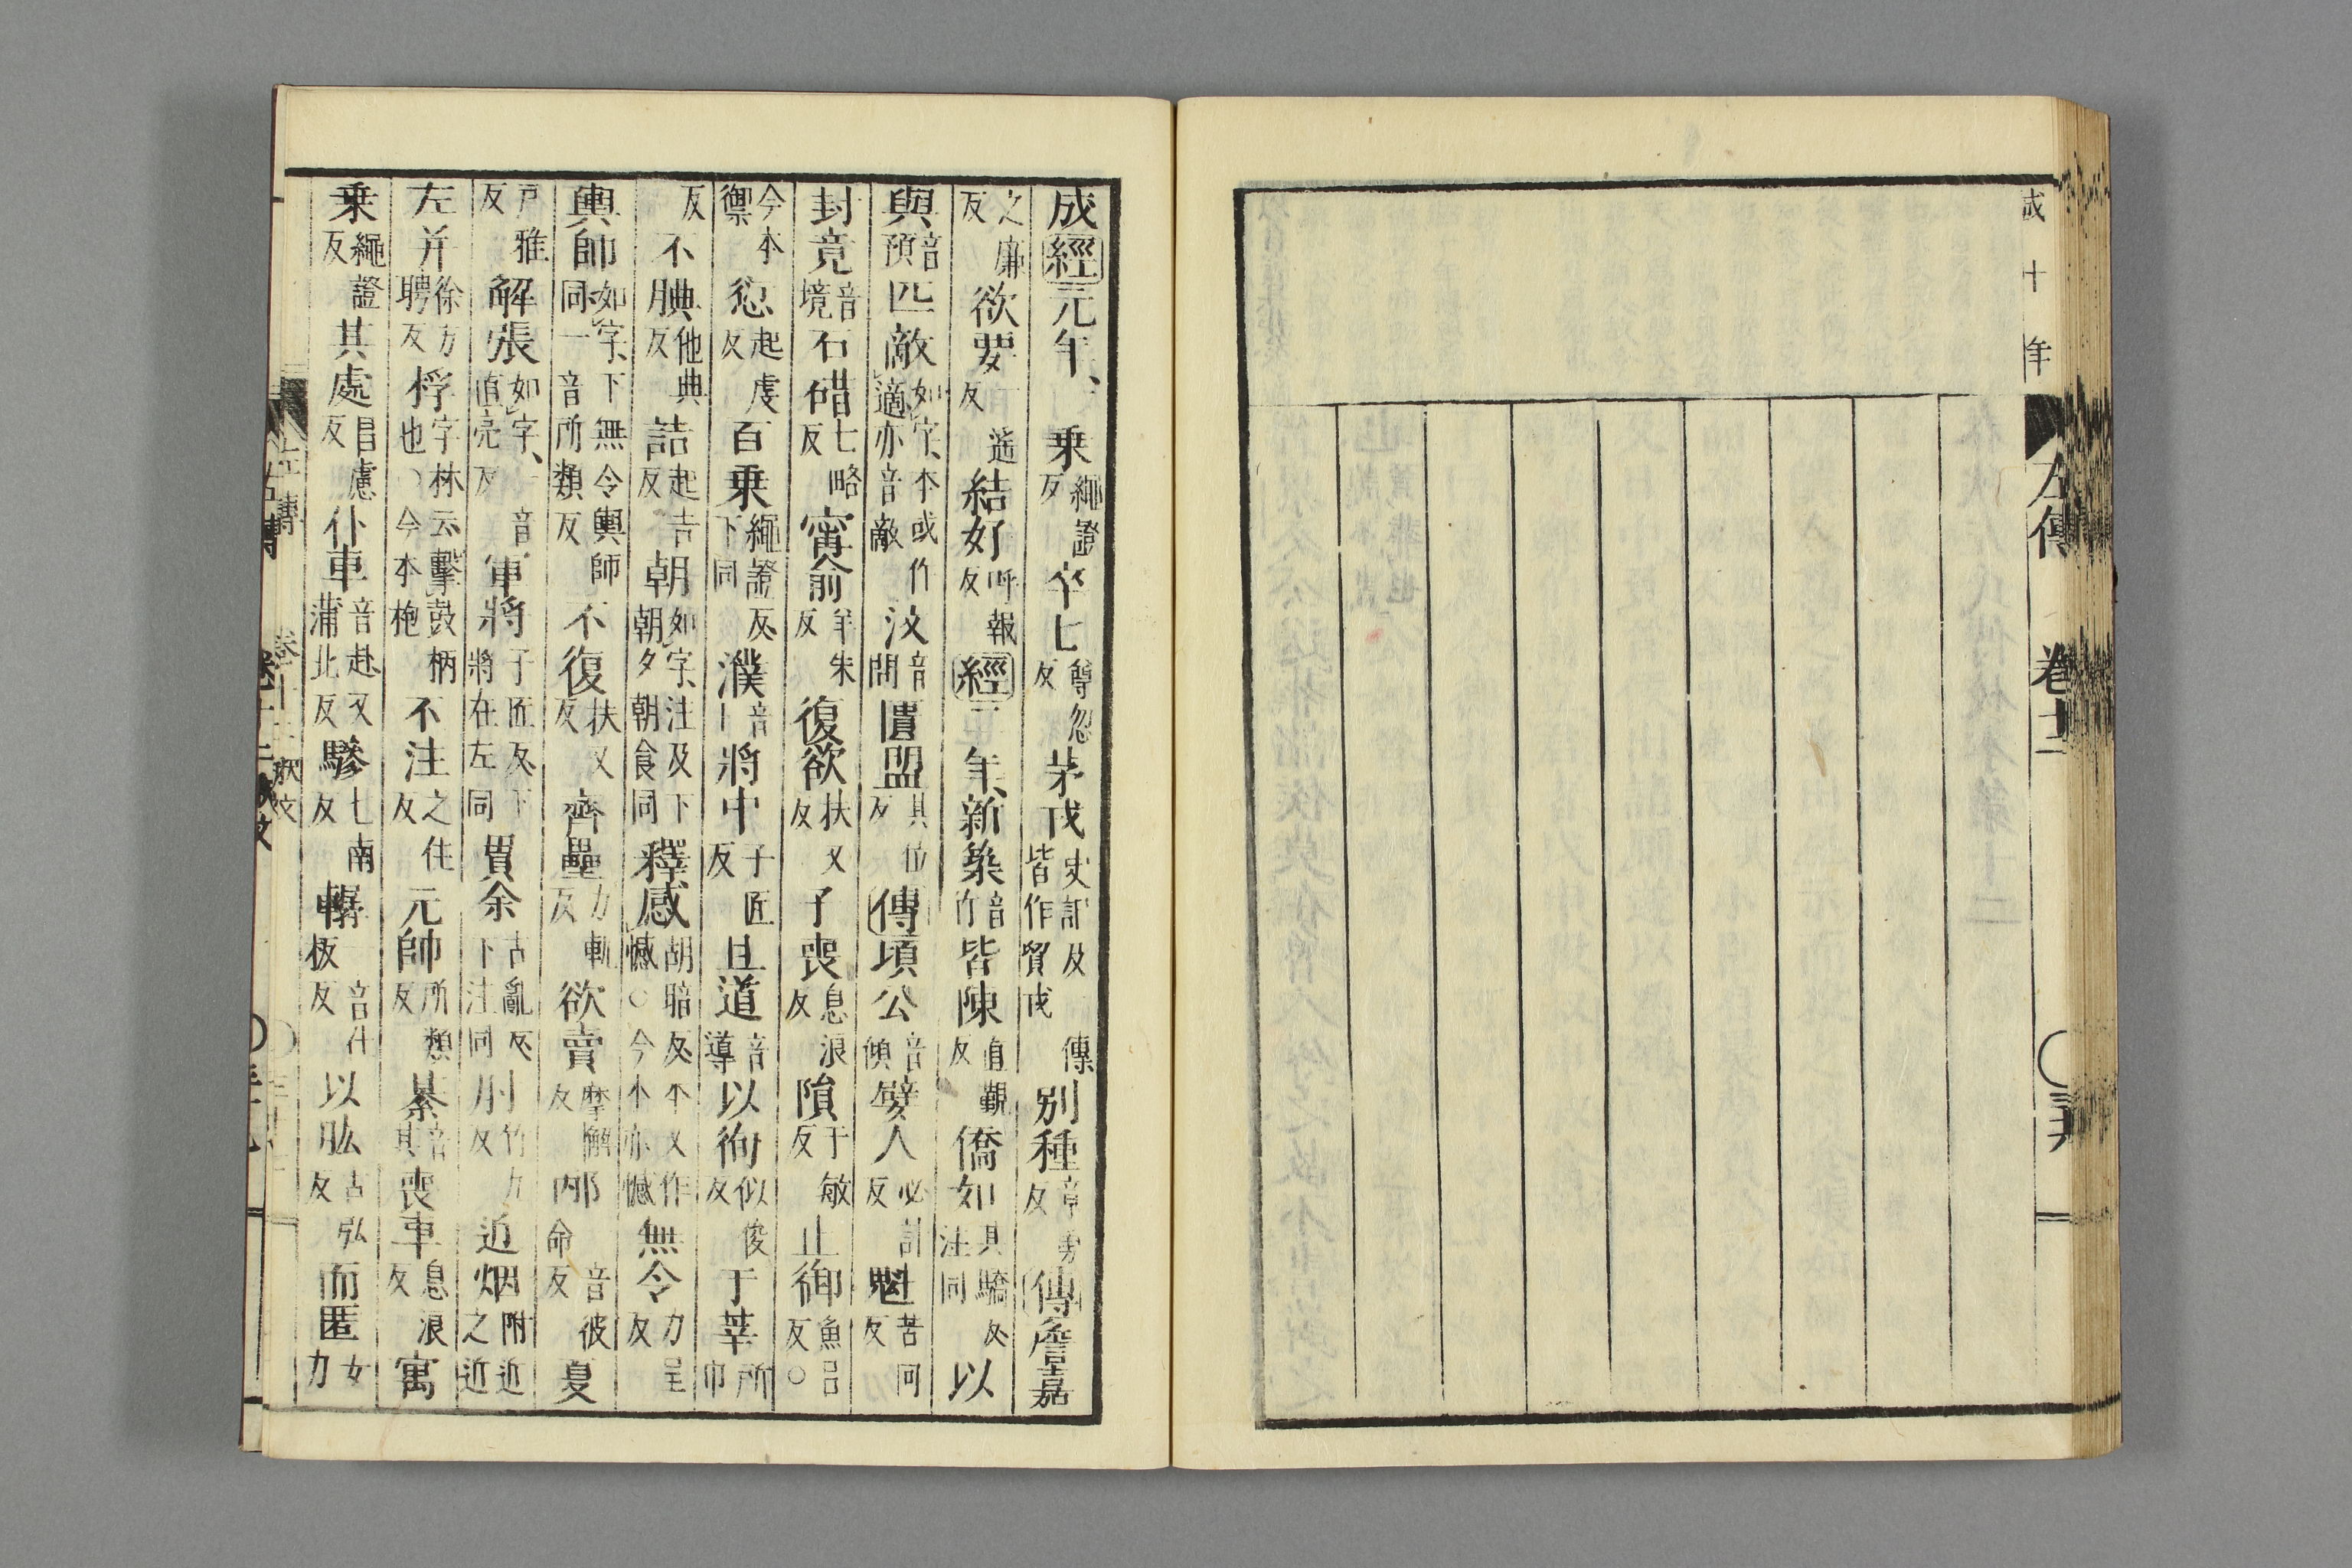 成十年
左傳
卷十二
成經元年、乗繩證反卒七尊忽反茅戎史記及傳皆作貿戎別種章勇反傳詹嘉
之廉反欲要一遥反結好呼報反經二年、新築音竹皆陳直覲反僑如其驕反注同以
與音預匹敵如字、本或作適亦音敵汶音問匱盟其位反傳頃公音傾嬖人必計反魁苦回反
封竟音境石碏七略反甯俞羊朱反復欲扶又反子喪息浪反隕于敏反止御魚呂反○
今本禦愆起虔反百乗繩證反下同濮音卜將中子匠反且道音導以徇似俊反于莘所巾
反不腆他典反詰起吉反朝如字、注及下朝夕朝食同釋感胡暗反本又作憾○今本亦憾無令力呈反
輿師如字、下無令輿師同一音所類反不復扶又反齊壘力軌反欲賣摩懈反邴音彼命反夏
戸雅反解張如字、一音直亮反軍將子匠反下將在左同貫余古亂反下注同肘竹九反近烟附近之近
左并徐方聘反桴字林云擊鼓柄也○今本枹不注之住反元帥所類反綦音其喪車息浪反寓
乗繩證反其處昌慮反仆車音赴又蒲北反驂七南反轏音仕板反以肱古弘反而匿女力
左傳
卷十二
釈文